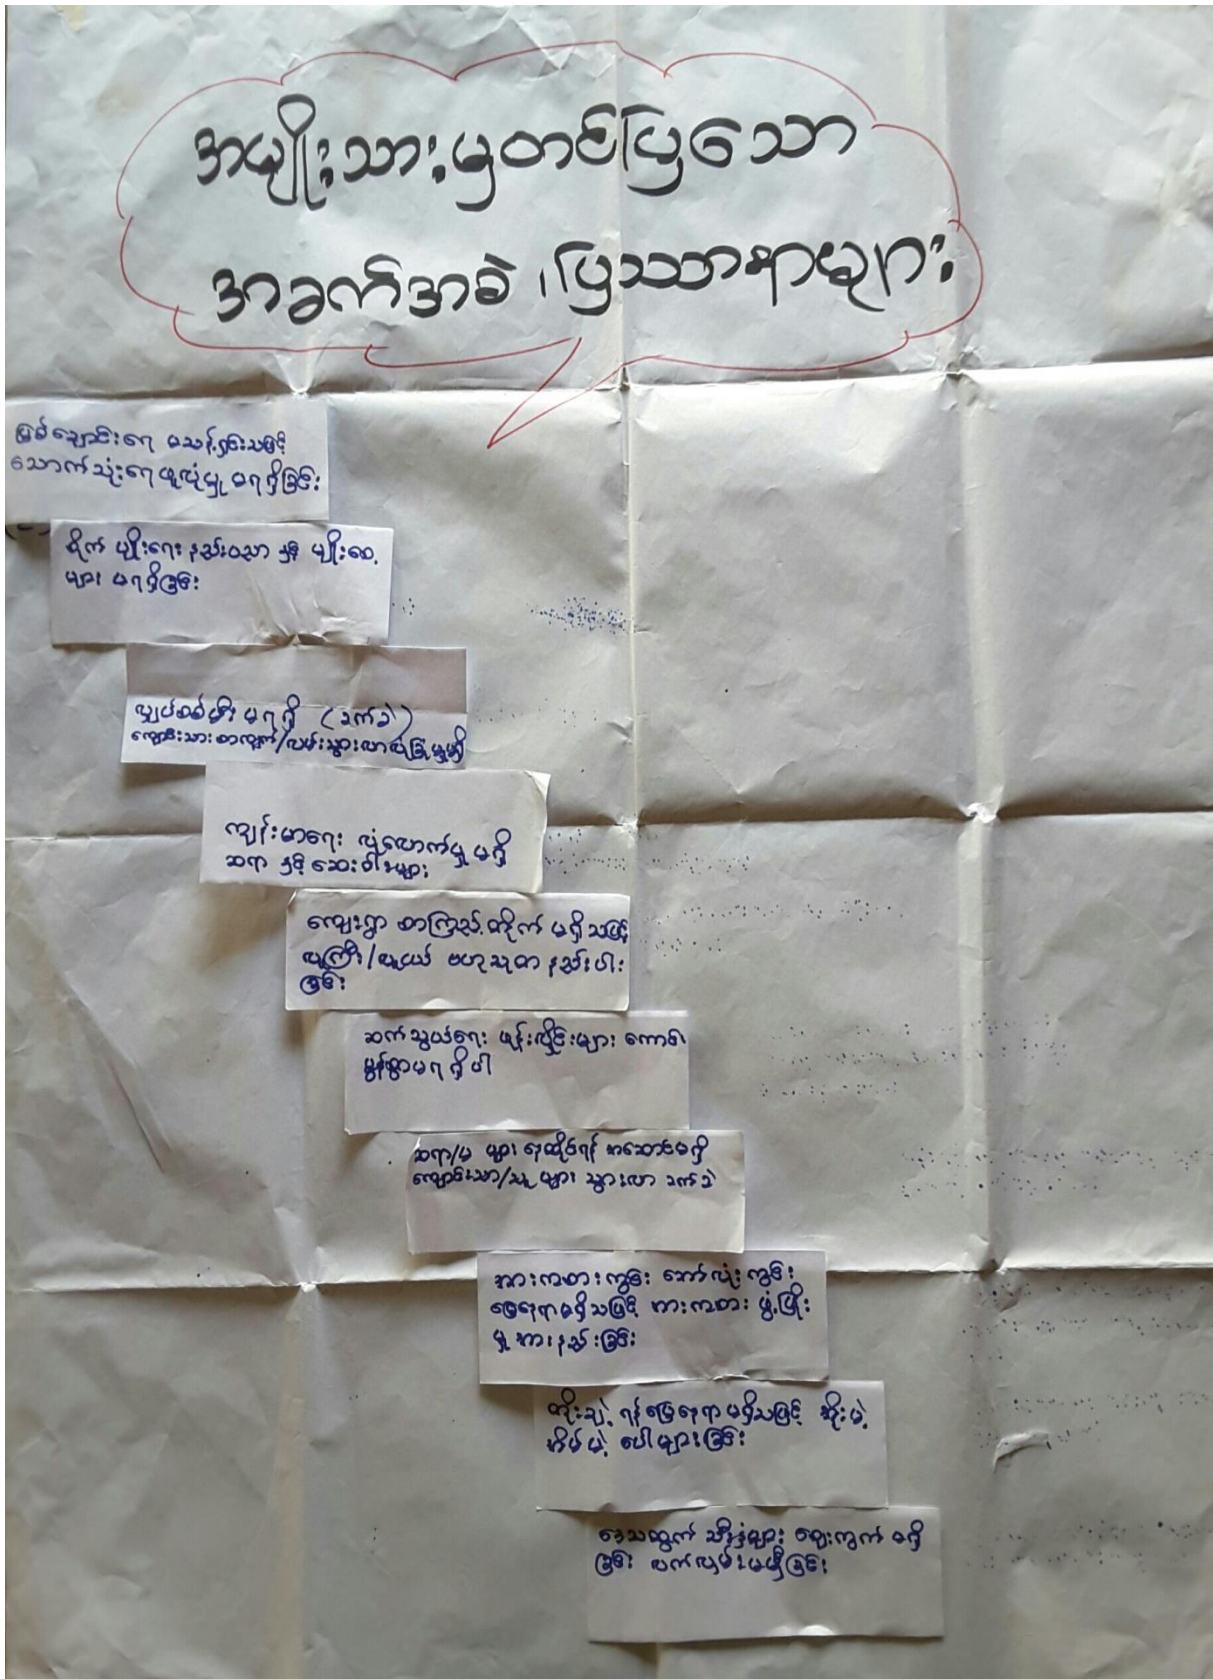 အမျိုးသားမှတင်ပြသော
အခက်အခဲ ၊ ပြဿနာများ
မြစ်ချောင်းရေ မသန့်ရှင်းသဖြင့်
သောက်သုံးရေဖူလုံမှု မရရှိခြင်း
စိုက်ပျိုးရေး နည်းပညာ နှင့် မျိုးစေ့
များ မရရှိခြင်း
လျှပ်စစ်မီး မရရှိ (ခက်ခဲ)
ကျောင်းသား စာကျက်/လမ်းသွားလာ လုံခြုံမှုမရှိ
ကျန်းမာရေး လုံလောက်မှု မရှိ
ဆရာ နှင့် ဆေးဝါးများ
ကျေးရွာ စာကြည့်တိုက် မရှိသဖြင့်
လူကြီး/လူငယ် ဗဟုသုတ နည်းပါး
ခြင်း
ဆက်သွယ်ရေး ဖုန်းလိုင်းများ ကောင်း
မွန်စွာမရရှိပါ
ဆရာ/မ များ နေထိုင်ရန် အဆောင်မရှိ
ကျောင်းသား/သူ များ သွားလာ ခက်ခဲ
အားကစားကွင်း ဘော်လုံးကွင်း
မြေနေရာမရှိသဖြင့် အားကစား ဖွံ့ဖြိုး
မှု အားနည်းခြင်း
တိုးချဲ့ ရန်မြေနေရာမရှိသဖြင့် အိုးမဲ့
အိမ်မဲ့ ပေါများခြင်း
ဒေသထွက် သီးနှံများ ဈေးကွက် မရှိ
ခြင်း လက်လှမ်းမမှီခြင်း